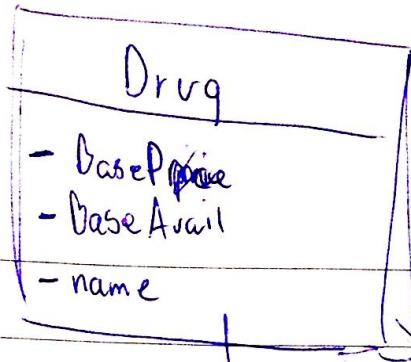 Drug
- BasePrice
- BaseAvail
- name